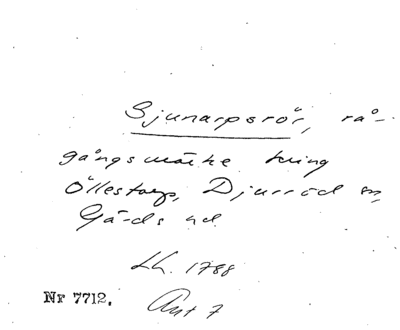 Sjunarpsrör, rå-
gångsmärke kring
Öllestorp, Djurröd sn,
Gärds hd
Lh. 1788
Nr 7712. Akt 7